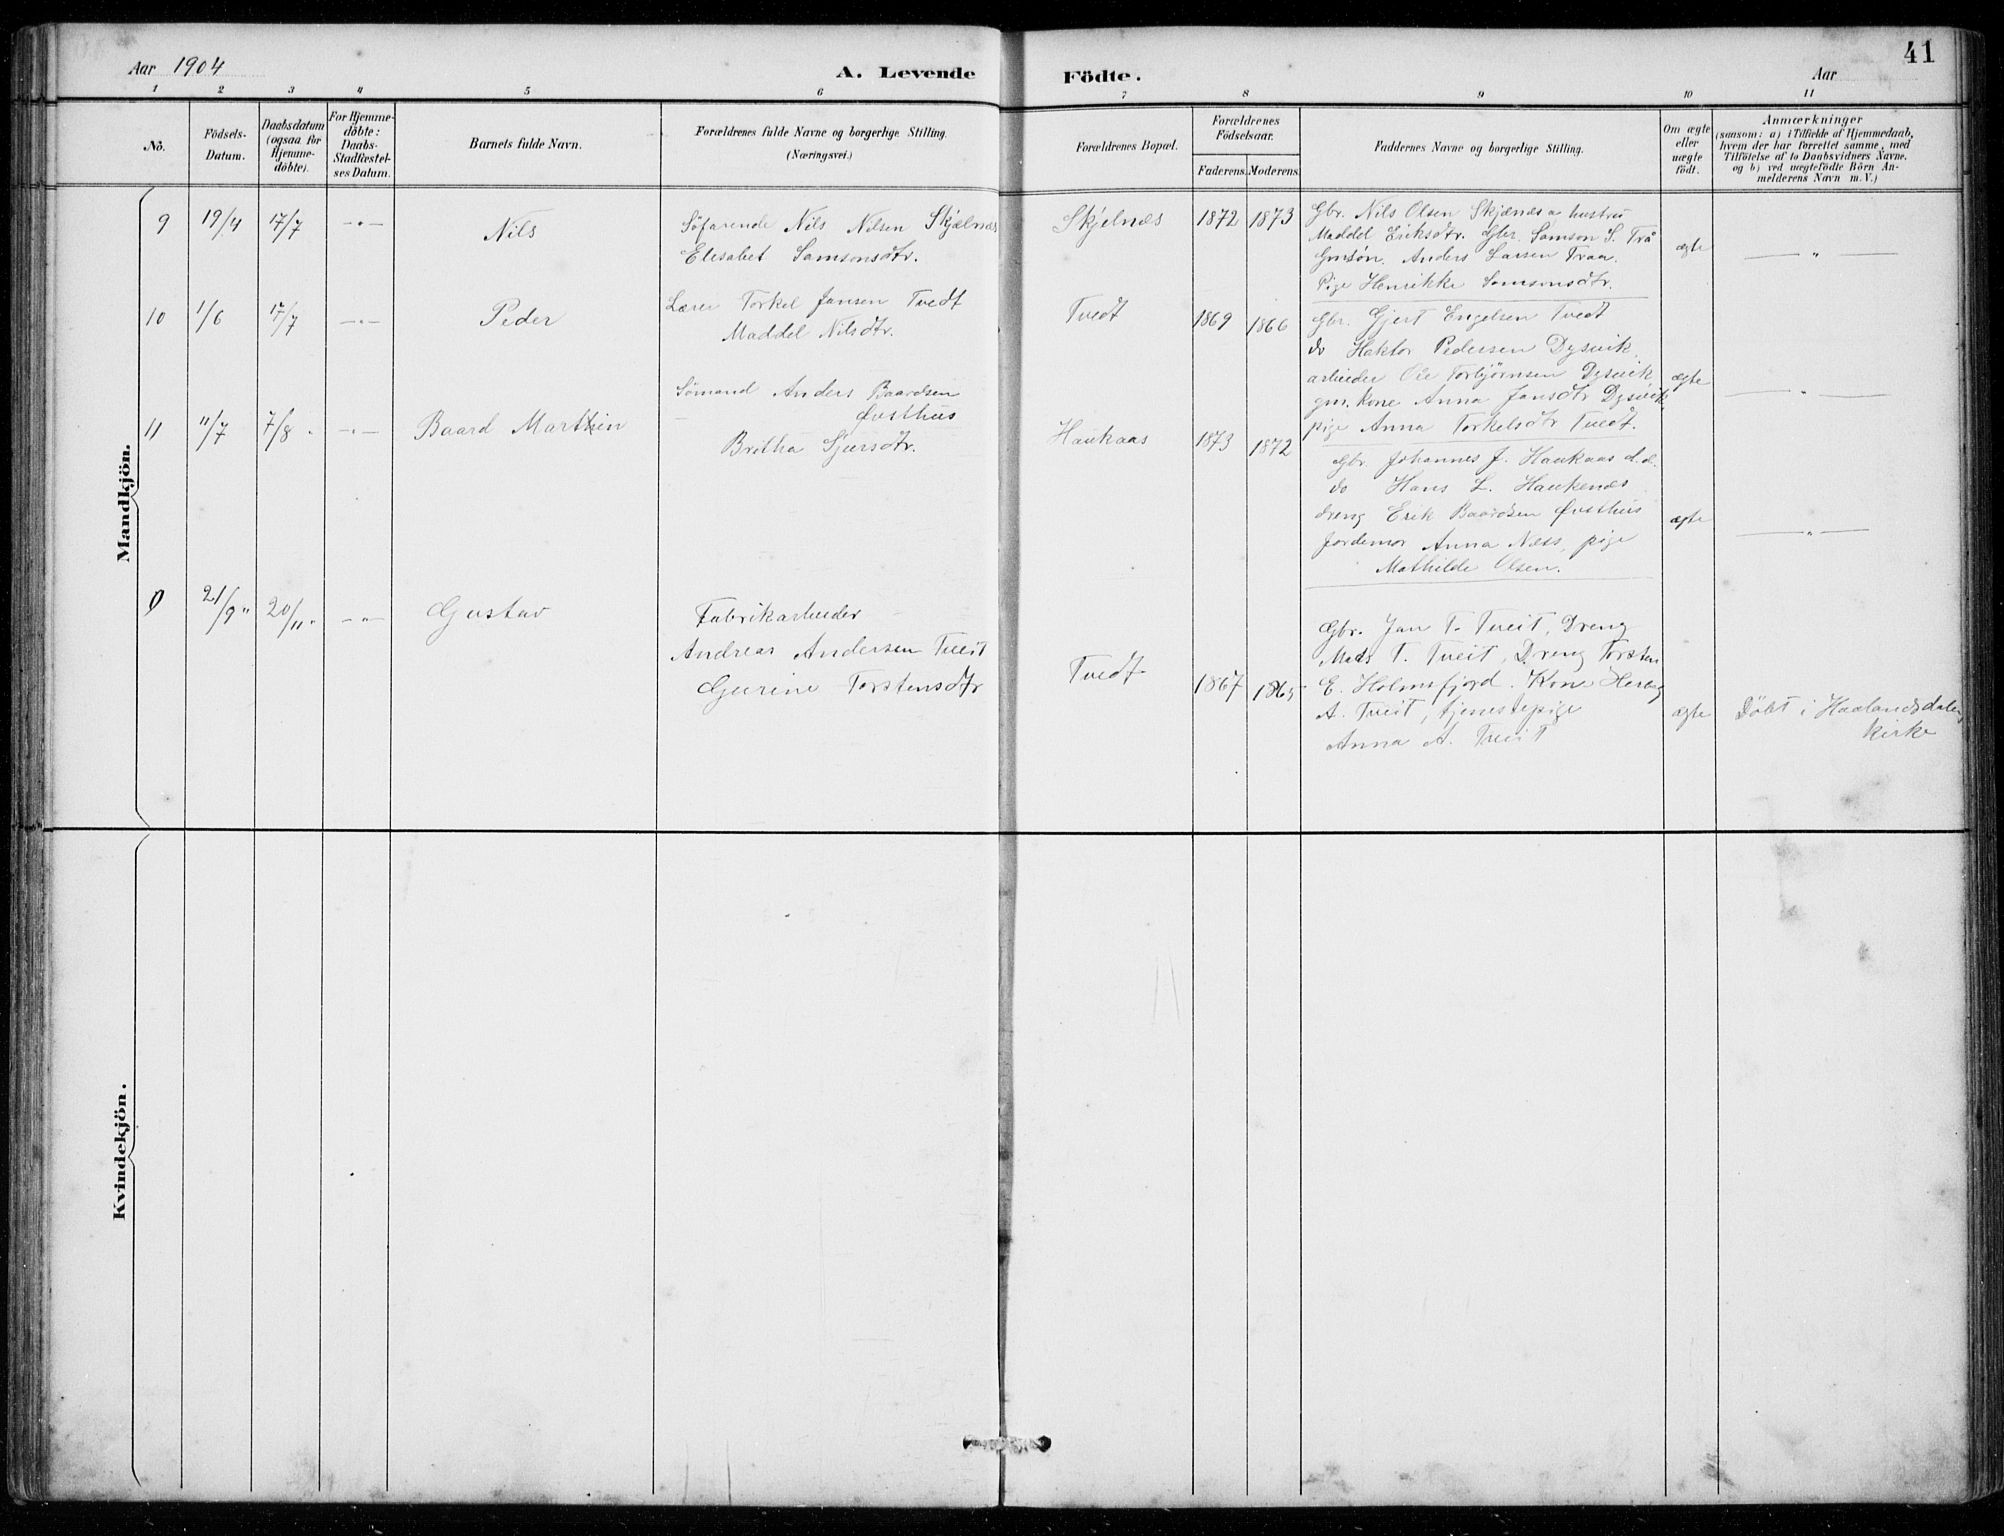 41
Aar 1904
A. Levende Födte.
Aar
1 2 3 4 5 6 7 8 9 10 11
No.
Födsels-
Datum.
Daabsdatum
(ogsaa for
Hjemme-
döbte).
For Hjemme-
döbte:
Daabs-
Stadfæstel-
ses Datum.
Barnets fulde Navn.
Forældrenes fulde Navne og borgerlige Stilling.
(Næringsvei.)
Forældrenes Bopæl.
Forældrenes
Födselsaar.
Faderens.
Moderens.
Faddernes Navne og borgerlige Stilling.
Om ægte
eller
uægte
födt.
Anmærkninger
(saasom: a) i Tilfælde af Hjemmedaab,
hvem der har forrettet samme, med
Tilföielse af to Daabsvidners Navne,
og b) ved uægtefödte Börn An-
melderens Navn m. V.)
Mandkjön.
9 19/4 17/7 -"- Nils
Söfarende Nils Nilsen Skjælnæs
Elisabet Samsonsdtr.
Skjelnæs 1872 1873
Gbr. Nils Olsen Skjænæs a hustru
Maddel Eriksdtr. Gbr. Samson S. Trå
Gmsøn. Anders Larsen Traa.
Pige Henrikke Samsonsdtr.
ægte -"-
10 1/6 17/7 -"- Peder
Lærer Torkel Jansen Tvedt
Maddel Nilsdtr.
Tvedt 1869 1866
Gbr. Gjert Engelsen Tvedt
do Haktor Pedersen Dysvik
arbeider Ole Torbjørnsen Dysvik
gm. kone Anna Jansdtr Dysvik
pige Anna Torkelsdtr Tvedt.
ægte -"-
11 11/7 7/8. -"- Baard Marthin
Sömand Anders Baardsen
Øvsthus
Britha Sjursdtr.
Haukaas 1873 1872
Gbr. Johannes J. Haukaas d.d.
do Hans L. Haukenæs
dreng Erik Baardsen Øvsthus
Jordemor Anna Næss, pige
Mathilde Olsen.
ægte -"-
21/9" 20/11" -"- Gustav
Fabrikarbeider
Andreas Andersen Tveit
Gurine Torstensdtr
Tvedt 1867 1865
Gbr. Jan T. Tveit, Dreng
Mads T. Tveit, Dreng Torsten
E. Holmefjord. Kone
A. Tveit, tjenestepige
Anna A. Tveit
ægte
Döbt i Haalandsdalen
kirke
Kvindekjön.